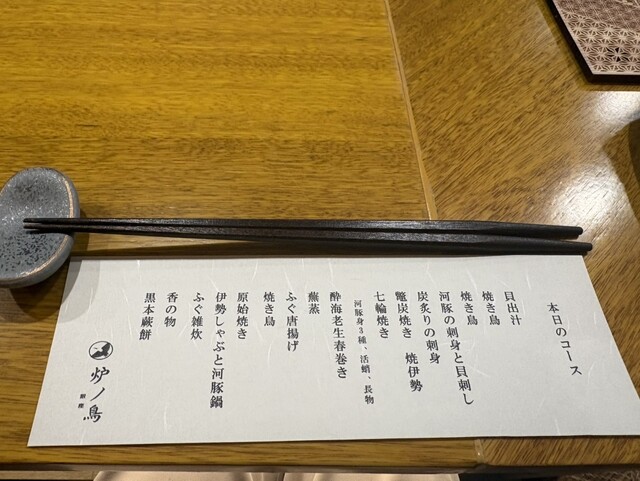 本日のコース
貝出汁
焼き鳥
焼き鳥
河豚の刺身と貝刺し
炭炙りの刺身
鼈炭焼き 焼伊勢
七輪焼き
河豚身3種、活蛸、長物
酔海老生春巻き
蕪蒸
ふぐ唐揚げ
焼き鳥
原始焼き
伊勢しゃぶと河豚鍋
ふぐ雑炊
香の物
黒本蕨餅
炉ノ鳥
銀座